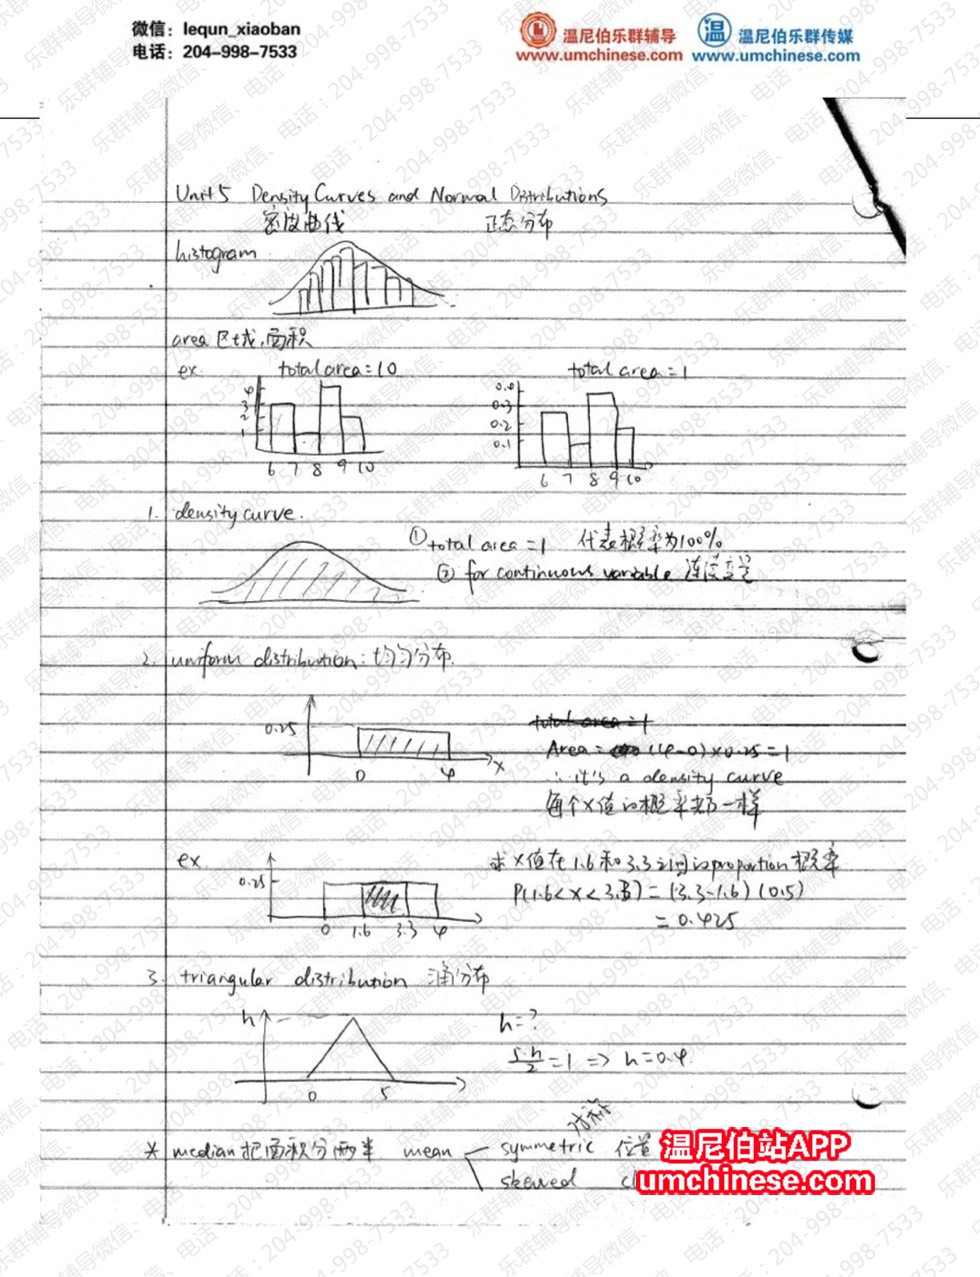 微信：lequn_xiaoban
电话：204-998-7533
温尼伯乐群辅导
www.umchinese.com
温尼伯乐群传媒
www.umchinese.com
Unit 5 Density Curves and Normal Distributions
密度曲线 正态分布
histogram
area 区域,面积
ex. total area=10 total area=1
4
3
2
1
6 7 8 9 10
0.4
0.3
0.2
0.1
6 7 8 9 10
1. density curve.
① total area=1 代表概率为100%
② for continuous variable 连续变量
2. uniform distribution: 均匀分布.
0.25
0 4 x
total area=1
Area = (4-0)×0.25=1
∴ it's a density curve
每个X值的概率都一样
ex.
0.25
0 1.6 3.3 4
求X值在1.6和3.3之间的proportion概率
P(1.6<X<3.3) = (3.3-1.6)(0.5)
= 0.425
3. triangular distribution 三角分布
h
0 5
h=?
5·h/2=1 => h=0.4
* median 把面积分两半 mean
对称
symmetric 位置
skewed
温尼伯站APP
umchinese.com
乐群辅导微信、电话：204-998-7533